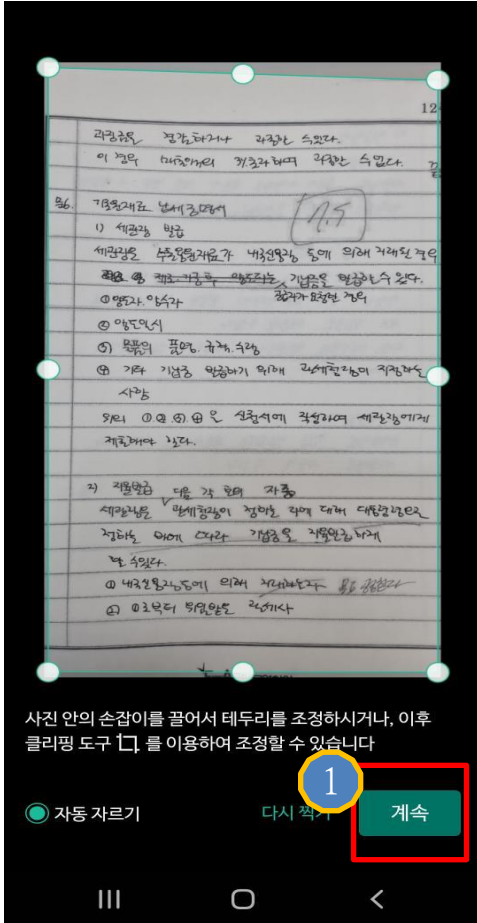 12
과징금을 경감하거나 과징할 수 있다.
이 경우 과징할 수 없다.
문6. 기초원재료 납세증명서
7.5
1) 세관장 발급
세관장은 수출용원재료가 내국신용장 등에 의해 거래된 경우
기납증을 발급할 수 있다.
양도자가 요청한 경우
① 양도자. 양수자
② 양도일시
③ 물품의 품명. 규격. 수량
④ 기타 기납증 발급하기 위해 관세청장이 지정하는
사항
위의 ①②③④은 신청서에 작성하여 세관장에게
제출해야 한다.
2) 자율발급 다음 각 호의 자 중
세관장은 관세청장이 정하는 자에 대해 대통령령으로
정하는 바에 따라 기납증을 자율발급하게
할 수 있다.
① 내국신용장등에 의해
② ①로부터 위임받은 관세사
사진 안의 손잡이를 끌어서 테두리를 조정하시거나, 이후
클리핑 도구 를 이용하여 조정할 수 있습니다
1
자동 자르기 다시 찍기 계속